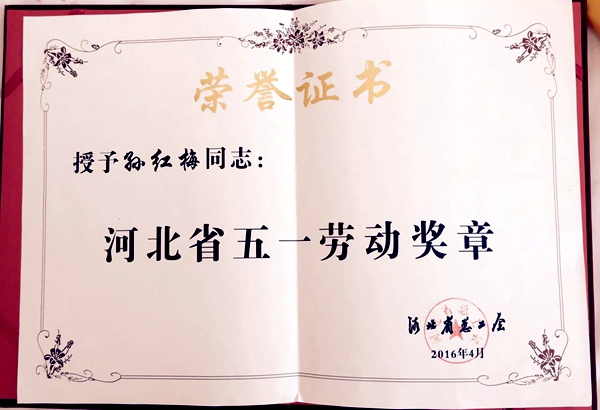 荣誉证书
授予孙红梅同志：
河北省五一劳动奖章
河北省总工会
2016年4月